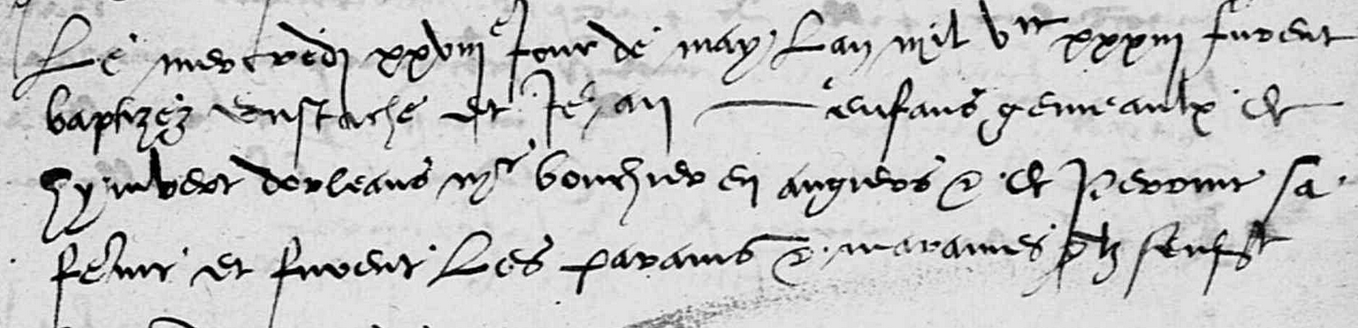 Le mercredi xxviiie jour de may lan mil vcc xxxiii furent
baptizez eustache et Jehan enfans gemeaulx de
hymbert dorleans mr bouchier en angiers & de Perrine sa
feme et furent les parains & maraines